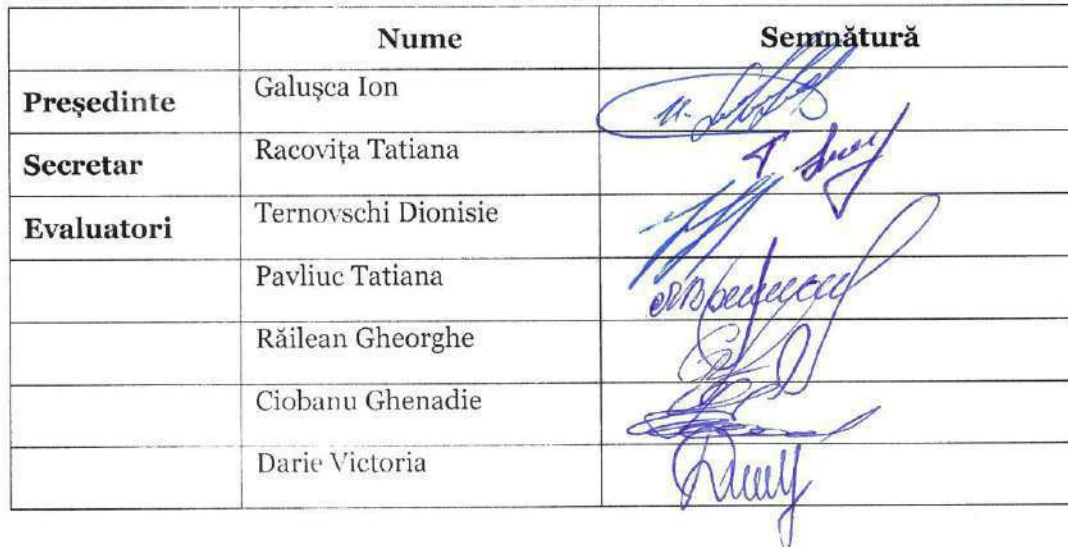 Nume Semnătură
Președinte Galușca Ion
Secretar Racovița Tatiana
Evaluatori Ternovschi Dionisie
Pavliuc Tatiana
Răilean Gheorghe
Ciobanu Ghenadie
Darie Victoria